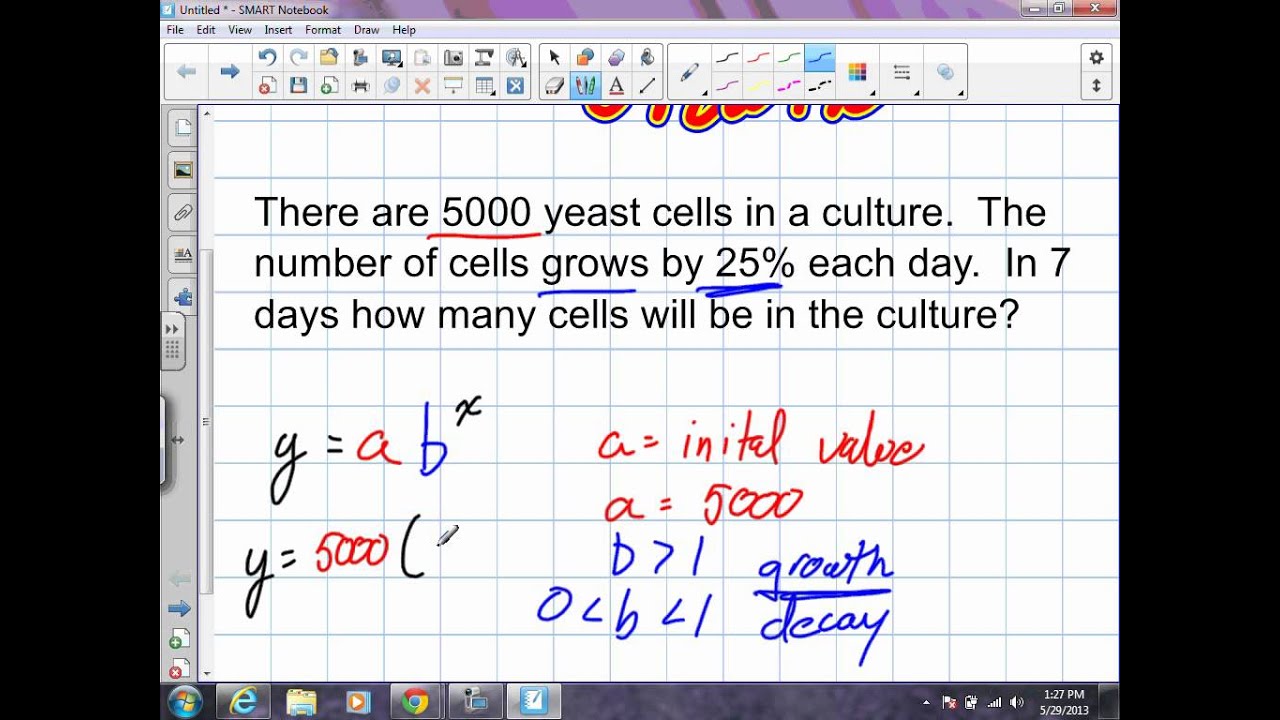 Untitled * - SMART Notebook
File Edit View Insert Format Draw Help
There are 5000 yeast cells in a culture. The
number of cells grows by 25% each day. In 7
days how many cells will be in the culture?
y = a b^x
a = inital value
a = 5000
y = 5000 (
b > 1 growth
0 < b < 1 decay
1:27 PM
5/29/2013